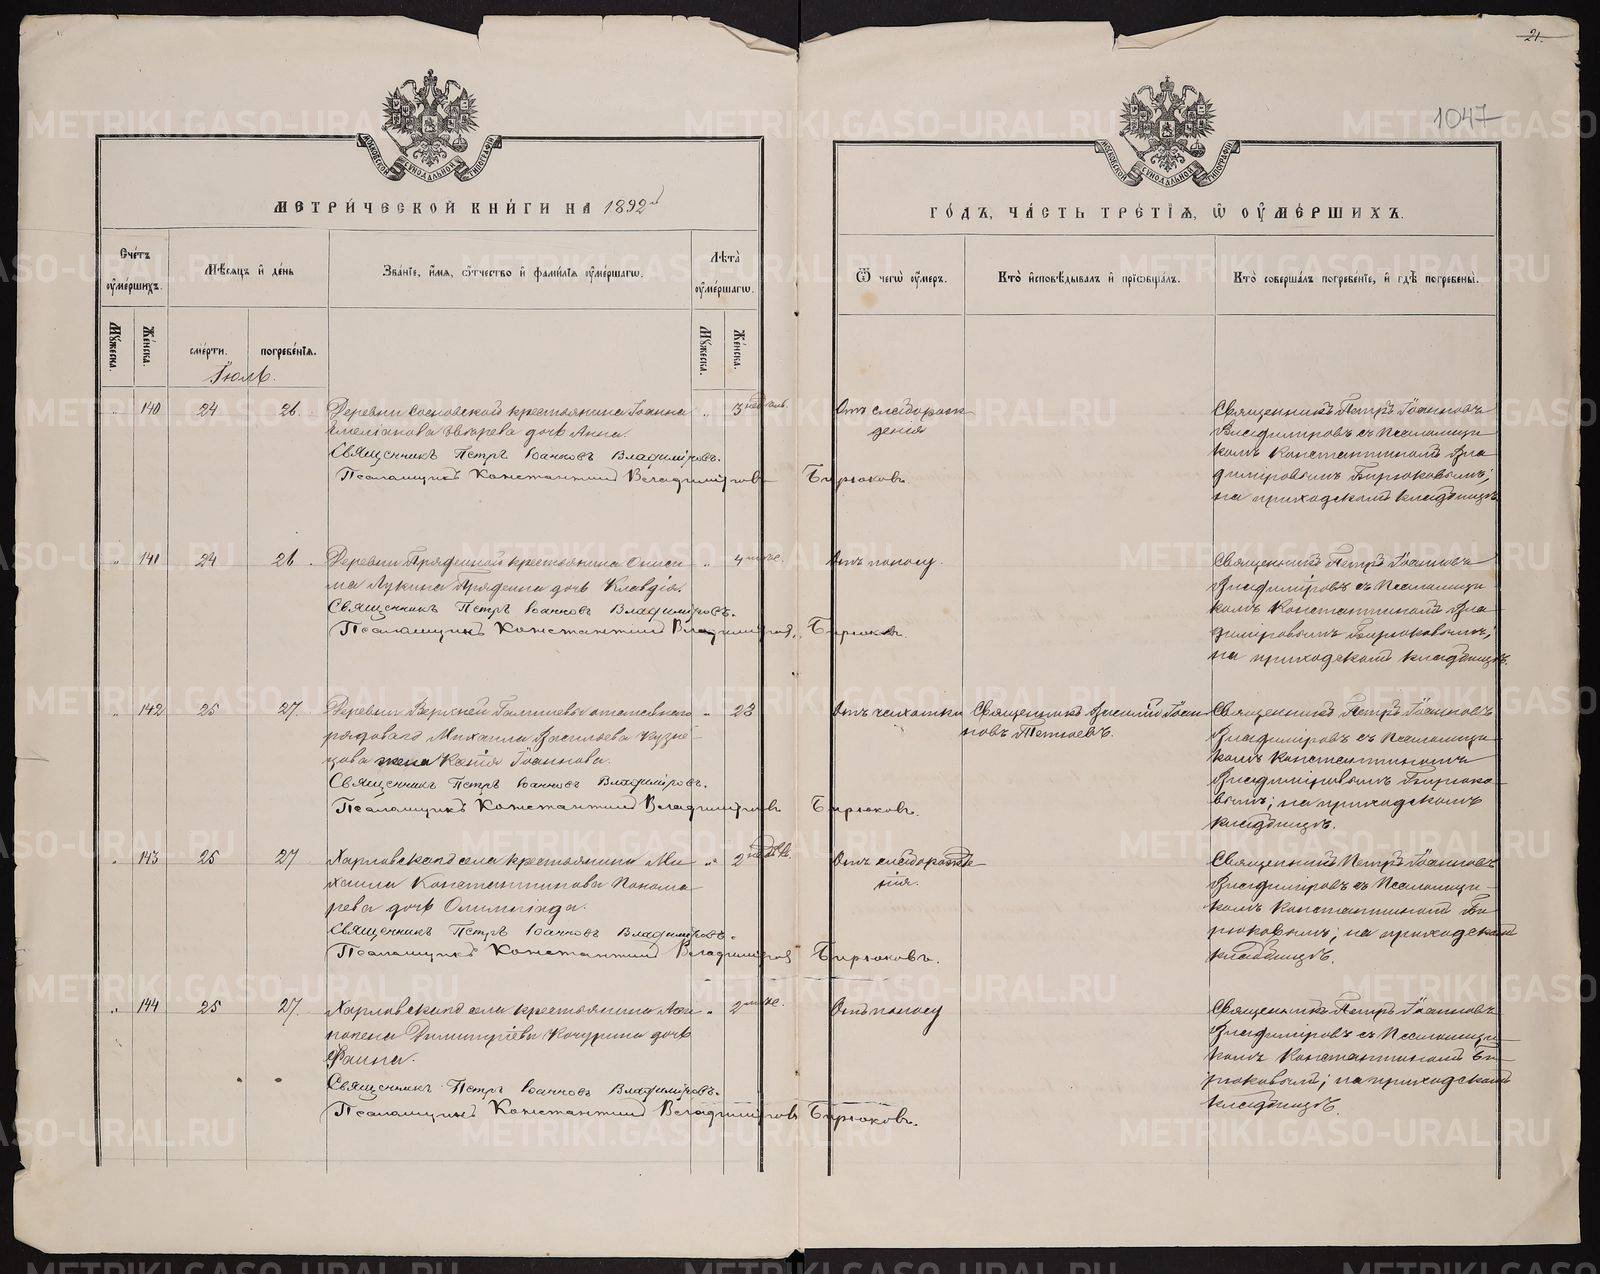 21.
1047
МОСКОВСКОЙ СУНОДАЛЬНОЙ ТИПОГРАФІИ
МОСКОВСКОЙ СУНОДАЛЬНОЙ ТИПОГРАФІИ
МЕТРИ́ЧЕСКОЙ КНИ́ГИ НА 1892й
ГО́ДЪ, ЧА́СТЬ ТРЕ́ТІѦ, Ѿ ОУ҆МЕ́РШИХЪ.
Сче́тъ оу҆ме́ршихъ.
Мѣсѧцъ и҆ де́нь
Зва́ніе, и҆́мѧ, ѻ҆́тчество и҆ фами́лїѧ оу҆ме́ршагѡ.
Лѣта̀ оу҆ме́ршагѡ.
Ѿ чегѡ̀ оу҆́меръ.
Кто̀ и҆сповѣ́дывалъ и҆ прїѡбща́лъ.
Кто̀ соверша́лъ погребе́нїе, и҆ гдѣ̀ погребены̀.
Мꙋ́жеска.
Же́нска.
сме́рти.
погребе́нїѧ.
Мꙋ́жеска.
Же́нска.
Іюль.
" 140 24 26. Деревни Сосновской крестьянина Іоанна " 3 недѣль.
Емеліанова Зварева дочь Анна.
Священникъ Петръ Іоанновъ Владиміровъ.
Псаломщикъ Константинъ Владиміровъ Бирюковъ.
Отъ слаборож-
денія
Священникъ Петръ Іоанновъ
Владиміровъ съ Псаломщи-
комъ Константиномъ Вла
диміровымъ Бирюковымъ;
на приходскомъ кладбищѣ
" 141 24 26. Деревни Пряденной крестьянина Ониси " 4 мѣс.
ма Лукина Пряденна дочь Клавдія.
Священникъ Петръ Іоанновъ Владиміровъ.
Псаломщикъ Константинъ Владиміров. Бирюков.
Отъ поносу.
Священникъ Петръ Іоанновъ
Владиміровъ съ Псаломщи
комъ Константиномъ Вла
диміровымъ Бирюковымъ;
на приходскомъ кладбищѣ.
" 142 25 27. Деревни Верхней отставнаго " 23
рядоваго Михаила Васильева Кузне-
цова жена Ксенія Іоаннова.
Священникъ Петръ Іоанновъ Владиміровъ.
Псаломщикъ Константинъ Владиміровъ Бирюковъ.
Отъ чахотки
Священникъ Василій Іоан
новъ
Священникъ Петръ Іоанновъ
Владиміровъ съ Псаломщи-
комъ Константиномъ
Владиміровымъ Бирюко-
вымъ; на приходскомъ
кладбищѣ.
" 143 25 27 Харловскаго села крестьянина Ми " 2 недѣль.
хаила Константинова Понома
рева дочь Олимпіада.
Священникъ Петръ Іоанновъ Владиміровъ.
Псаломщикъ Константинъ Владиміров Бирюковъ.
Отъ слаборожде-
нія.
Священникъ Петръ Іоанновъ
Владиміровъ съ Псаломщи-
комъ Константиномъ Би
рюковымъ; на приходскомъ
кладбищѣ.
" 144 25 27. Харловскаго села крестьянина " 2 мѣс.
Димитріева Кочурина дочь
Фаина.
Священникъ Петръ Іоанновъ Владиміровъ.
Псаломщикъ Константинъ Владиміровъ Бирюковъ.
Отъ поносу
Священникъ Петръ Іоанновъ
Владиміровъ съ Псаломщи
комъ Константиномъ Би-
рюковымъ; на приходскомъ
кладбищѣ.
METRIKI.GASO-URAL.RU